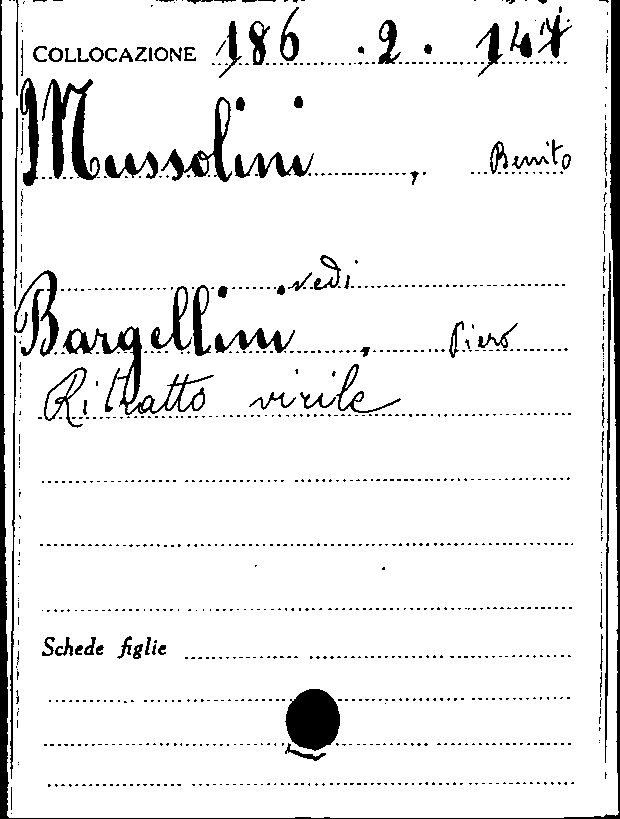 COLLOCAZIONE 186 . 2 . 147
Mussolini , Benito
vedi
Bargellini , Piero
Ritratto virile
Schede figlie